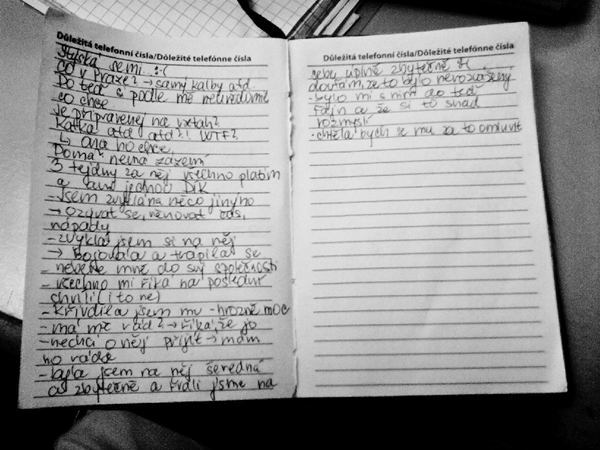 Důležitá telefonní čísla/Dôležité telefónne čísla
Stýská semi :-(
co v Praze? → samý kalby atd
Do teď s podle mě neuvědomil
co chce
Je připravenej na vztah?
Katka atd atd?! WTF?
↳ ona ho chce,
Doma nemá zázemí
3 tejdny za něj všechno platim
a ani jednou Dík
- Jsem zvyklá na něco jinýho
→ Ozývat se, věnovat čas,
nápady
- zvykla jsem si na něj
→ Bojovala a trápila se
- nevezme mně do svý společnosti
- všechno mi říká na poslední
chvíli (i to ne)
- křivdila jsem mu - hrozně moc
- má mě rád? → říká, že jo
- nechci o něj přijít → mám
ho ráda
- byla jsem na něj šeredná
a zbytečně a řvali jsme na
Důležitá telefonní čísla/Dôležité telefónne čísla
sebe úplně zbytečně
doufám, že to bylo nevozážený
- bylo mi s nim do teď
fajn a že si to snad
rozmyslí
- chtěla bych se mu za to omluvit